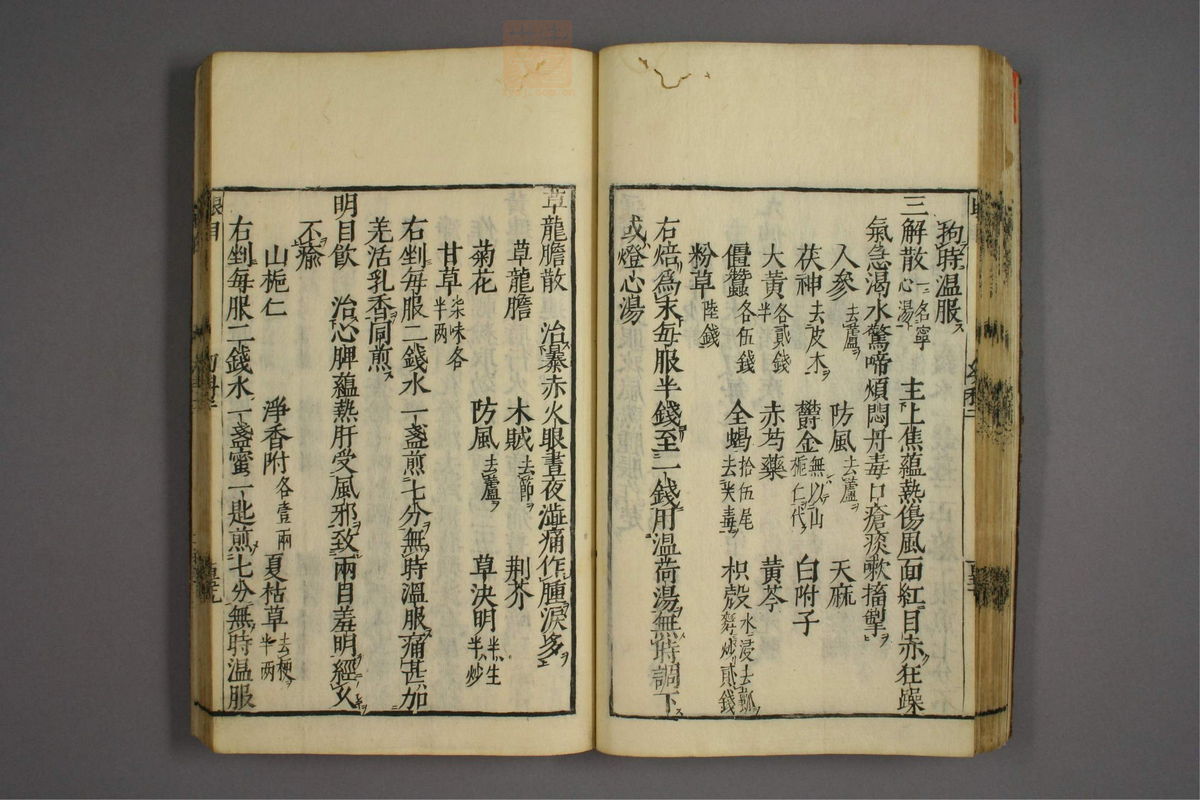 拘時温服
三解散一名寧心湯 主上焦蘊熱傷風面紅目赤狂躁
氣急渴水驚啼煩悶丹毒口瘡痰嗽搐掣
人參去蘆 防風去蘆 天麻
茯神去皮木 鬱金無以山梔仁代 白附子
大黃各貳錢半 赤芍藥 黃芩
僵蠶各伍錢 全蝎拾伍尾去尖毒 枳殼水浸去瓤麩炒貳錢
粉草陸錢
右焙爲末每服半錢至一錢用温荷湯無時調下
或燈心湯
草龍膽散 治暴赤火眼晝夜澁痛作腫淚多
草龍膽 木賊去節 荆芥
菊花 防風去蘆 草決明半生半炒
甘草柒味各半兩
右剉每服二錢水一盞煎七分無時温服痛甚加
羌活乳香同煎
明目飲 治心脾蘊熱肝受風邪致兩目羞明經久
不瘉
山梔仁 淨香附各壹兩 夏枯草去梗半兩
右剉每服二錢水一盞蜜一匙煎七分無時温服
眼目